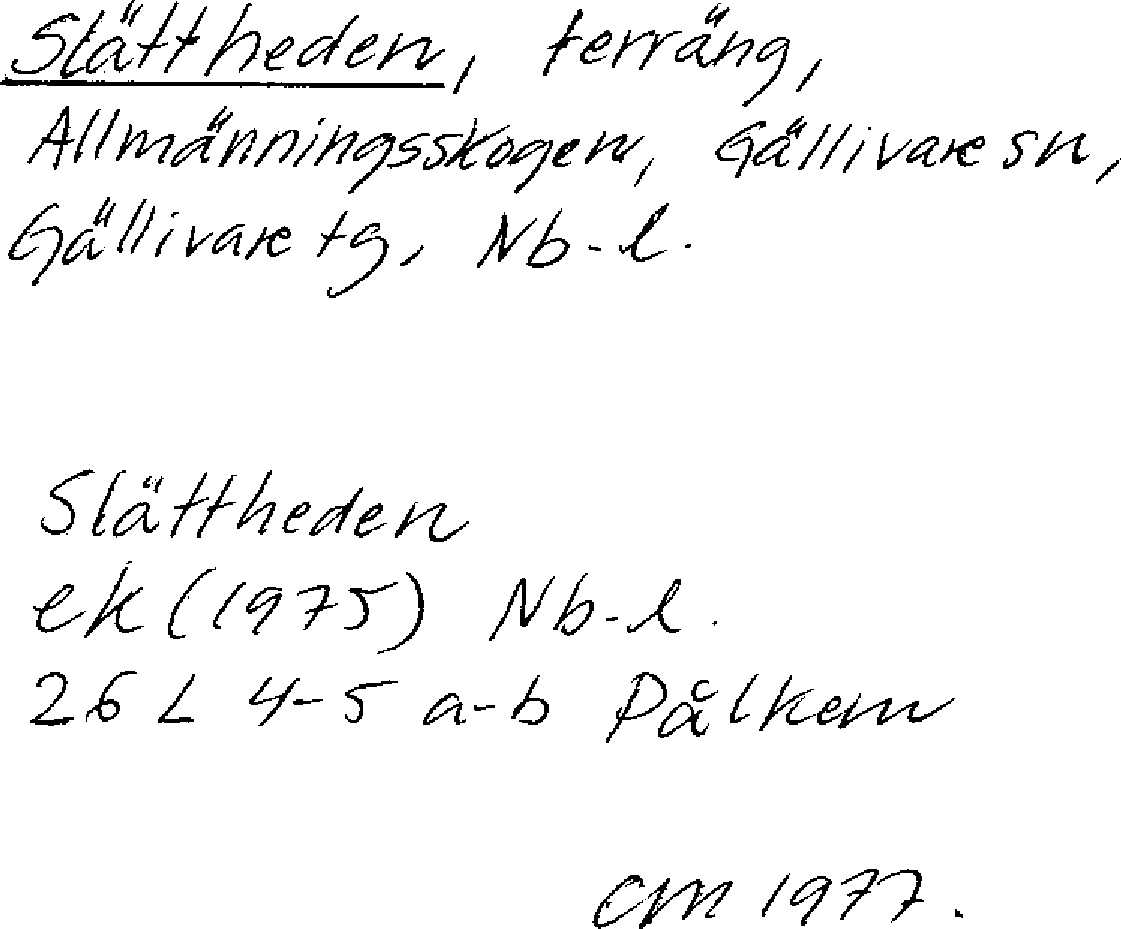 Slättheden, terräng,
Allmänningsskogen, Gällivare sn,
Gällivare tg, Nb-l.
Slättheden
ek (1975) Nb-l.
26 L 4-5 a-b Pålkem
CM 1977.